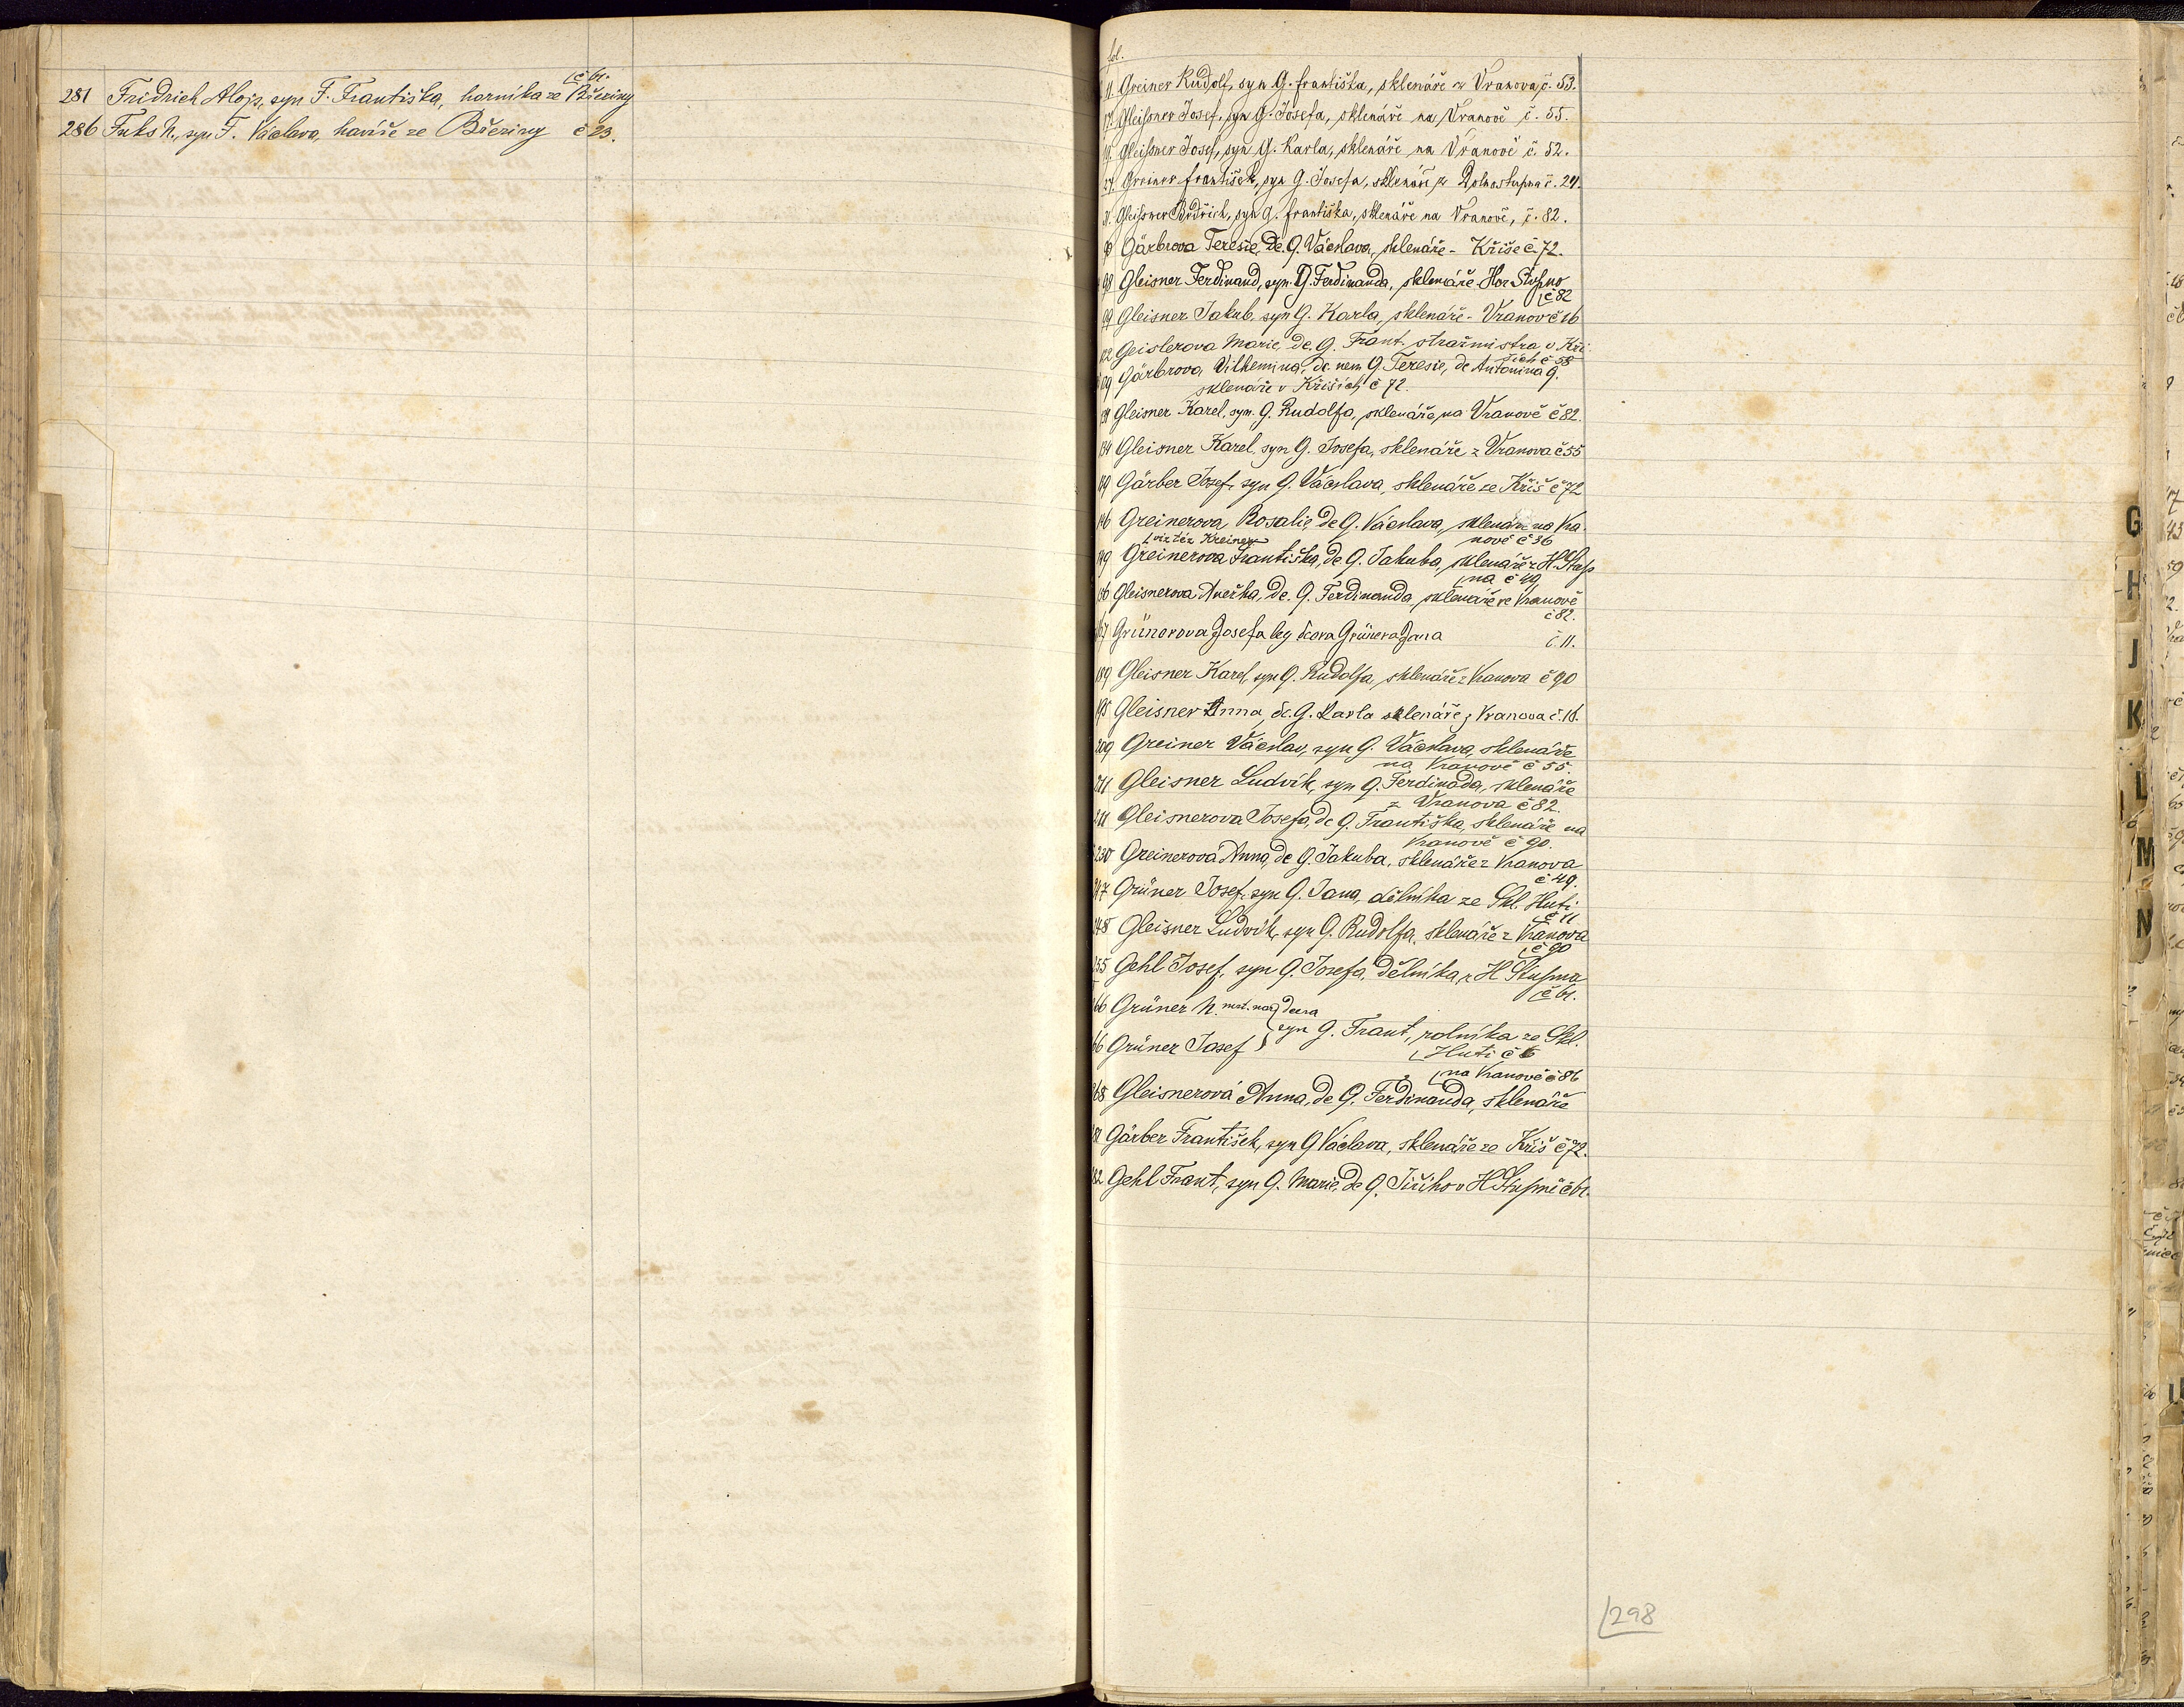 č 61.
281 Fridrich Alojs, syn F. Františka, horníka ze Březiny
286 Fuks N., syn F. Václava, havíře ze Březiny č 23.
fol.
11 Greiner Rudolf, syn G. františka, sklenáře z Vranova, č. 53.
17. Gleißner Josef, syn G. Josefa, sklenáře na Vranově č. 55.
Gleißner Josef, syn G. Karla, sklenáře na Vranově č. 52.
27. Greiner františek, syn G. Josefa, sklenáře z Dolnostupna č. 24.
Gleißner Bedřich, syn G. františka, sklenáře na Vranově, č. 82.
Gärbrova Teresie, dc. G. Václava, sklenáře - Kříše č. 72.
98 Gleisner Ferdinand, syn. G. Ferdinanda, sklenáře Hor Stupno
č 82
99 Gleisner Jakub, syn G. Karla, sklenáře - Vranov č 16
122 Geislerova Marie, dc. G. Frant. stražmistra v Kří
ších č 58
129 Gärbrova, Vilhemina, dc. nem G. Teresie, dc Antonína G.
sklenáře v Kříších č 72.
Gleisner Karel, syn. G. Rudolfa, sklenáře, na Vranově č 82.
134 Gleisner Karel, syn G. Josefa, sklenáře z Vranova č 55
139 Gärber Josef, syn G. Václava, sklenáře ze Kříš č 72
146 Greinerova Rosalie, dc G. Václava, sklenáře na Vra-
nově č 36
viz též Kreiner
149 Greinerova Františka, dc G. Jakuba, sklenáře z H. Stup
na č 49
156 Gleisnerova Anežka, dc. G. Ferdinanda, sklenáře ve Vranově
č 82.
167 Grünerova Josefa leg dcera Grünera Jana č. 11.
189 Gleisner Karel, syn G. Rudolfa, sklenáře z Vranova č 90
195 Gleisner Anna, dc. G. Karla sklenáře z Vranova č. 16.
209 Greiner Václav, syn G. Václava, sklenáře
na Vranově č 55.
211 Gleisner Ludvík, syn G. Ferdinada, sklenáře
z Vranova č 82.
211 Gleisnerova Josefa, dc G. Františka, sklenáře na
Vranově č 90.
230 Greinerova Anna, dc G. Jakuba, sklenáře z Vranova
č 49.
247 Grüner Josef, syn G. Jana, dělníka ze Skl. Huti
č 11
248 Gleisner Ludvík, syn G. Rudolfa, sklenáře z Vranova
č 90
255 Gehl Josef, syn G. Josefa, dělníka, z H Stupna
č 61.
266 Grüner N. mrt. nar. dcera
syn G. Frant., rolníka ze Skl.
266 Grüner Josef
Huti č 6
na Vranově č 86
268 Gleisnerová Anna, dc G. Ferdinanda, sklenáře
Gärber František, syn G Václava, sklenáře ze Kříš č 72.
282 Gehl Frant, syn G. Marie, dc G. Jiřího v H Stupně č 61.
298
G
H
J
K
L
M
N